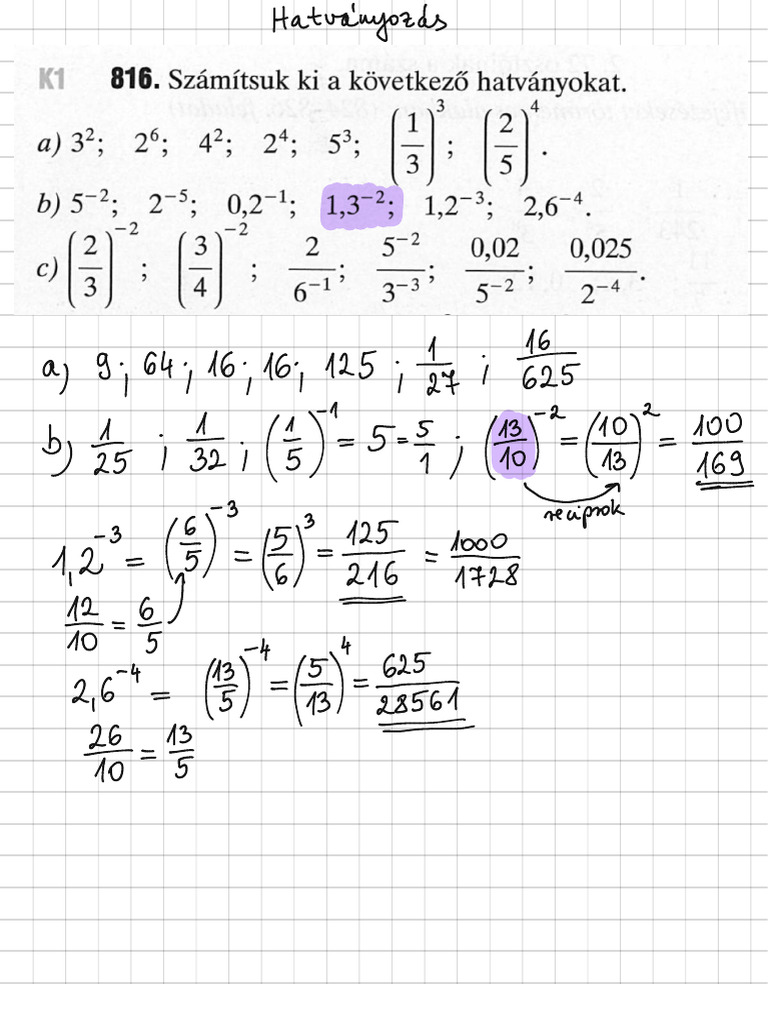 Hatványozás
K1 816. Számítsuk ki a következő hatványokat.
a) 3²; 2⁶; 4²; 2⁴; 5³; (1/3)³; (2/5)⁴.
b) 5⁻²; 2⁻⁵; 0,2⁻¹; 1,3⁻²; 1,2⁻³; 2,6⁻⁴.
c) (2/3)⁻²; (3/4)⁻²; 2/6⁻¹; 5⁻²/3⁻³; 0,02/5⁻²; 0,025/2⁻⁴.
a) 9; 64; 16; 16; 125; 1/27; 16/625
b) 1/25; 1/32; (1/5)⁻¹ = 5 = 5/1; (13/10)⁻² = (10/13)² = 100/169
reciprok
1,2⁻³ = (6/5)⁻³ = (5/6)³ = 125/216 = 1000/1728
12/10 = 6/5
2,6⁻⁴ = (13/5)⁻⁴ = (5/13)⁴ = 625/28561
26/10 = 13/5